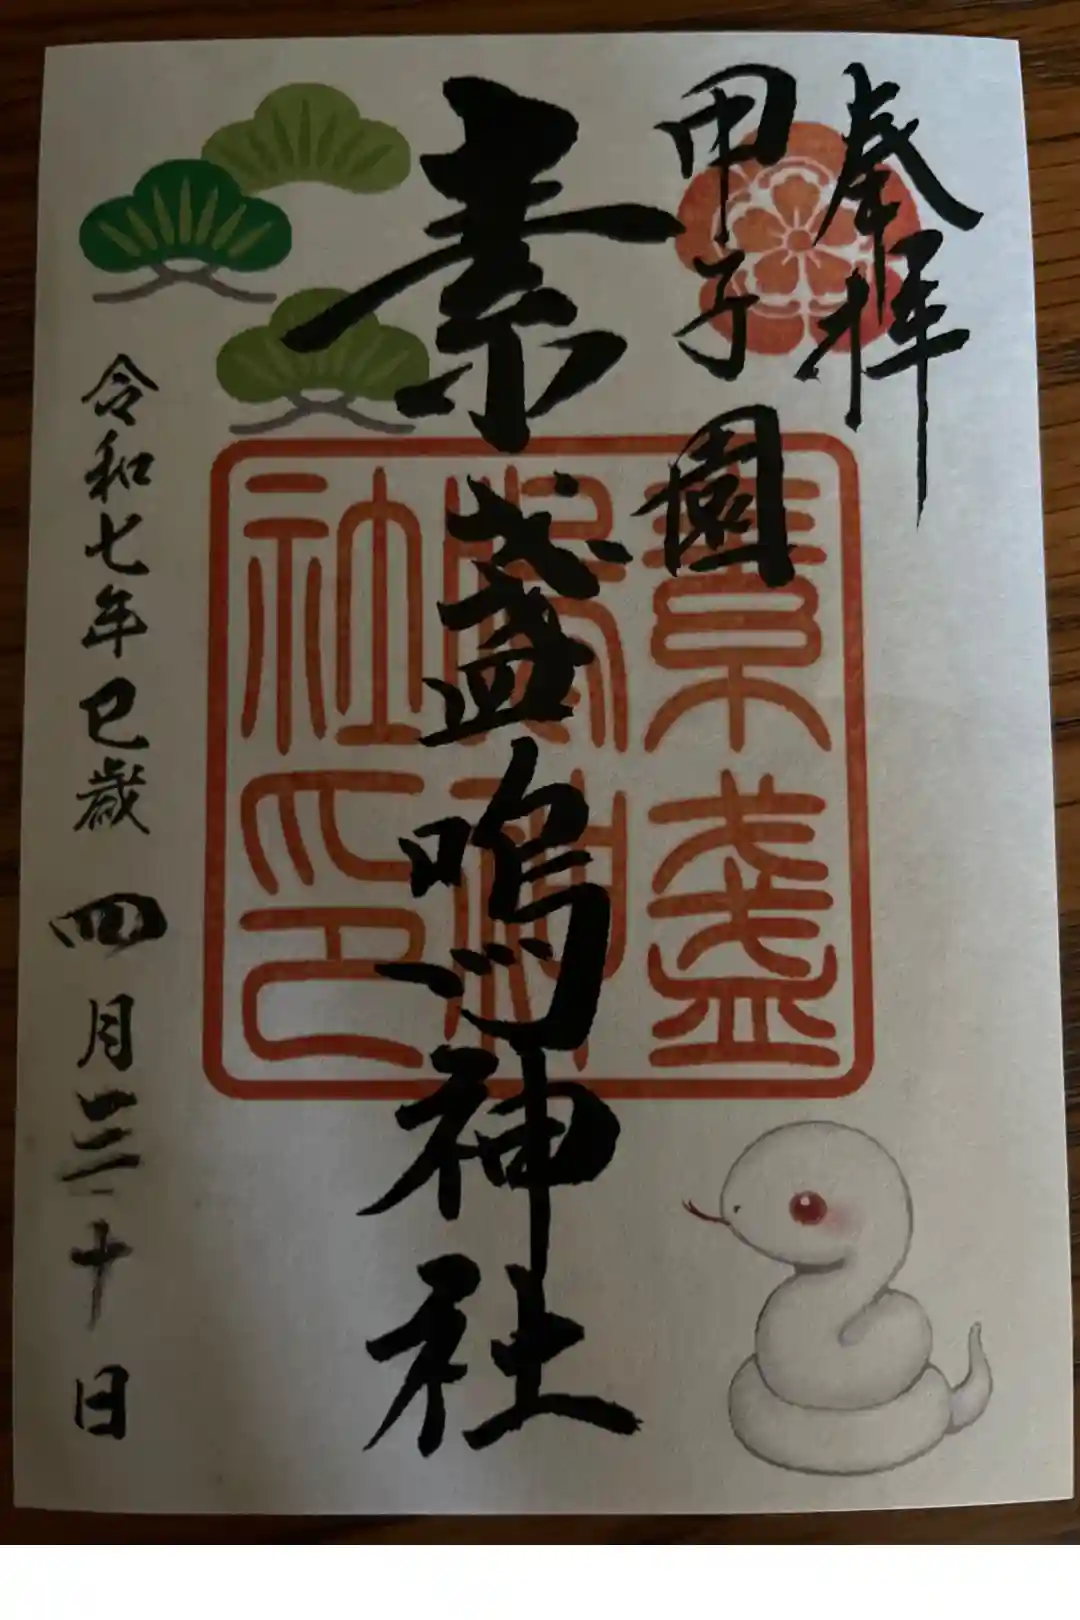 奉拝
甲子園
素盞嗚神社
素盞
嗚神
社印
令和七年巳歳四月三十日